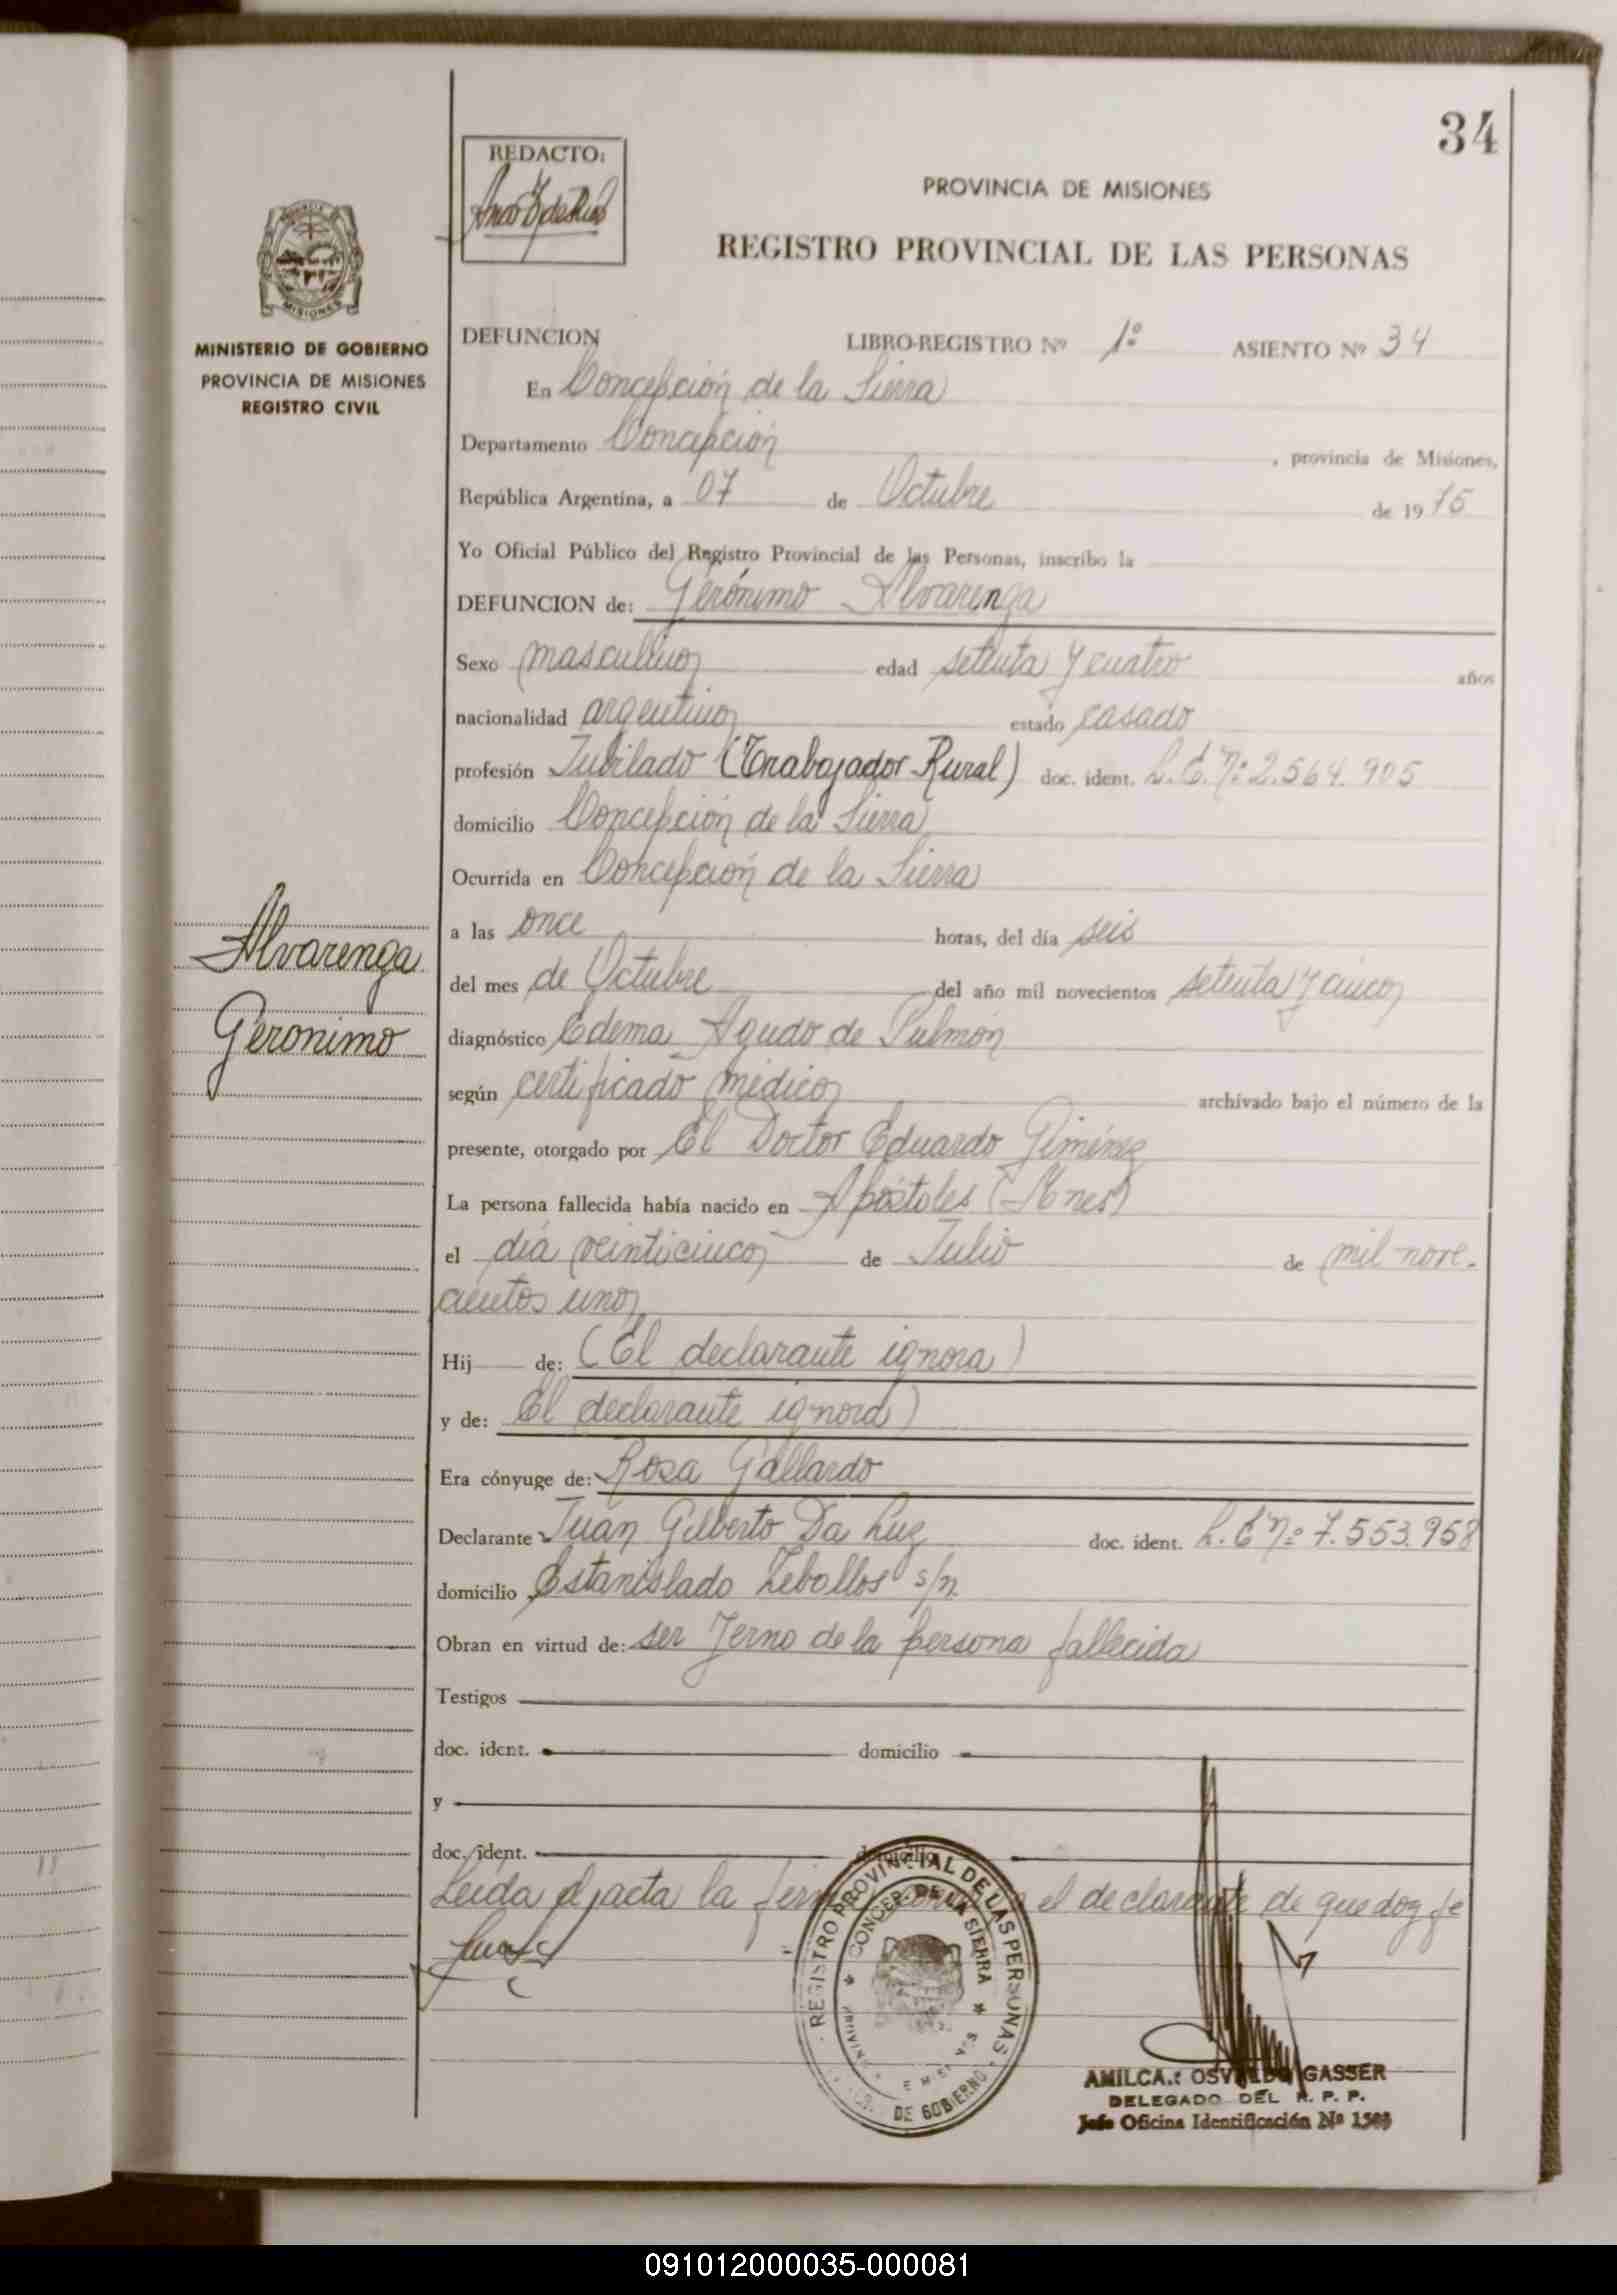 34
REDACTO:
PROVINCIA DE MISIONES
REGISTRO PROVINCIAL DE LAS PERSONAS
MISIONES
MINISTERIO DE GOBIERNO
PROVINCIA DE MISIONES
REGISTRO CIVIL
DEFUNCION LIBRO-REGISTRO Nº 1º ASIENTO Nº 34
En Concepción de la Sierra
Departamento Concepción, provincia de Misiones,
República Argentina, a 07 de Octubre de 1975
Yo Oficial Público del Registro Provincial de las Personas, inscribo la
DEFUNCION de: Gerónimo Alvarenga
Sexo masculino edad setenta y cuatro años
nacionalidad argentino estado casado
profesión Jubilado (Trabajador Rural) doc. ident. L.E.Nº 2.564.905
domicilio Concepción de la Sierra
Ocurrida en Concepción de la Sierra
a las once horas, del día seis
del mes de Octubre del año mil novecientos setenta y cinco
Alvarenga
Geronimo
diagnóstico Edema Agudo de Pulmón
según certificado médico archivado bajo el número de la
presente, otorgado por El Doctor Eduardo Giménez
La persona fallecida había nacido en Apóstoles (Mnes)
el día veinticinco de Julio de mil nove-
cientos uno
Hij de: (El declarante ignora)
y de: El declarante ignora)
Era cónyuge de: Rosa Gallardo
Declarante Juan Gilberto Da Luz doc. ident. L.E Nº 7.553.958
domicilio Estanislado Zeballos s/n
Obran en virtud de: ser Yerno de la persona fallecida
Testigos
doc. ident. domicilio
y
doc. ident. domicilio
Leida el acta la el declarante de que doy fe
REGISTRO PROVINCIAL DE LAS PERSONAS
CONCEP. DE LA SIERRA
DE GOBIERNO
GASSER
DELEGADO DEL R. P. P.
Jefe Oficina Identificación Nº
091012000035-000081